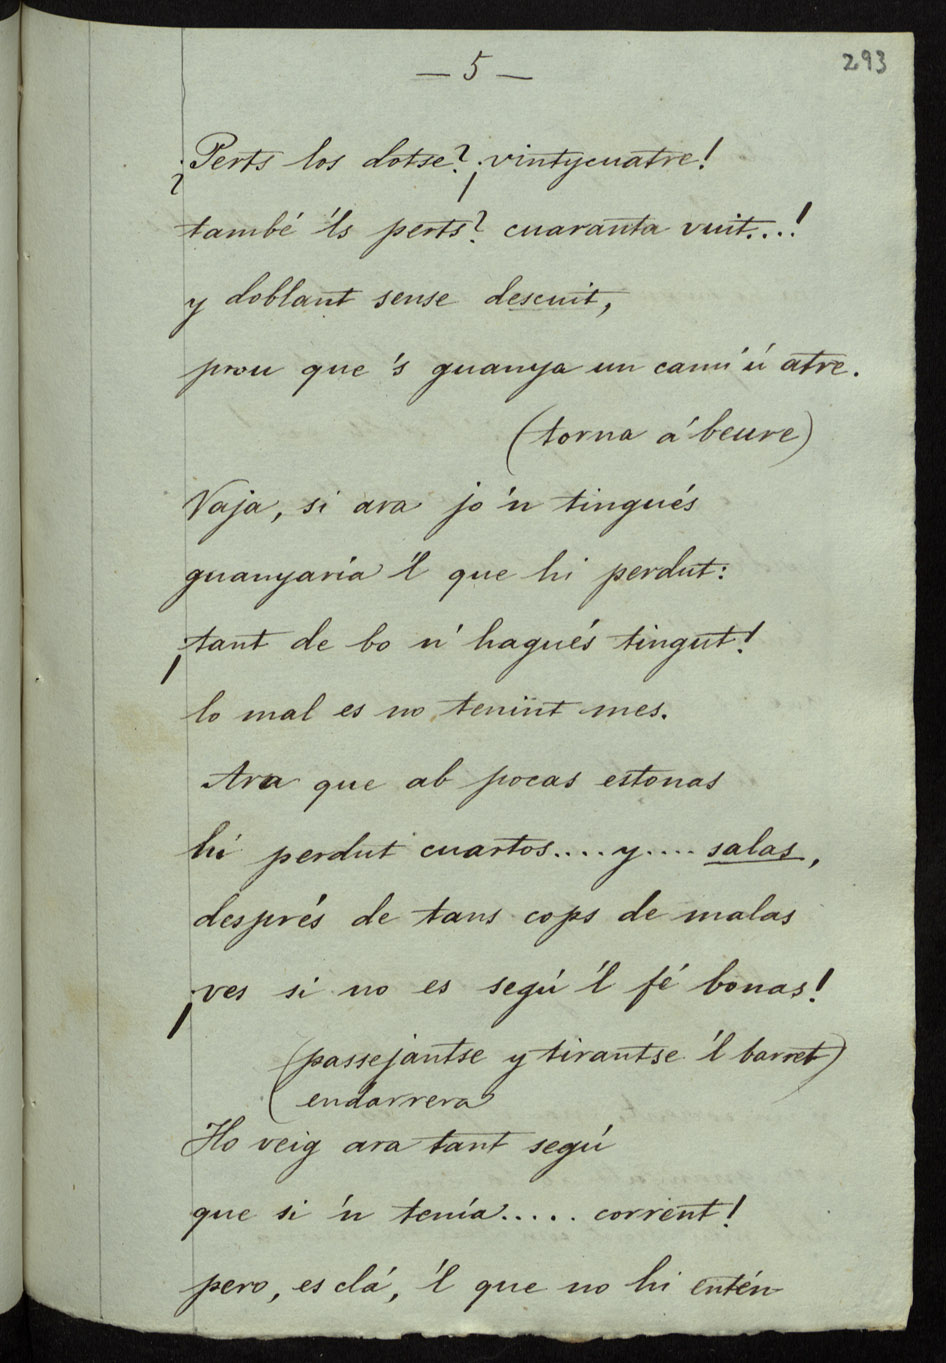 293
— 5 —
¿Perts los dotse? ¡vintycuatre!
també 'ls perts? cuaranta vuit...!
y doblant sense descuit,
prou que 's guanya un camí ú atre.
(torna á beure)
Vaja, si ara jo 'n tingués
guanyaría 'l que hi perdut:
¡tant de bo n' hagués tingut!
lo mal es no tenint mes.
Ara que ab pocas estonas
hi perdut cuartos....y.... salas,
després de tans cops de malas
¡ves si no es segú 'l fé bonas!
(passejantse y tirantse 'l barret
endarrera)
Ho veig ara tant segú
que si 'n tenía..... corrent!
pero, es clá, 'l que no hi entén